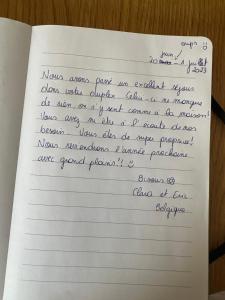 oups
juin
20 - 1 juillet
2023
Nous avons passé un excellent séjour
dans votre duplex. Celui-ci ne manque
de rien, on s'y sent comme à la maison!
Vous avez été à l'écoute de nos
besoin - Vous êtes de super proprio!
Nous reviendrons l'année prochaine
avec grand plaisir!! ☺
Bisous
Claire et Eric
Belgique